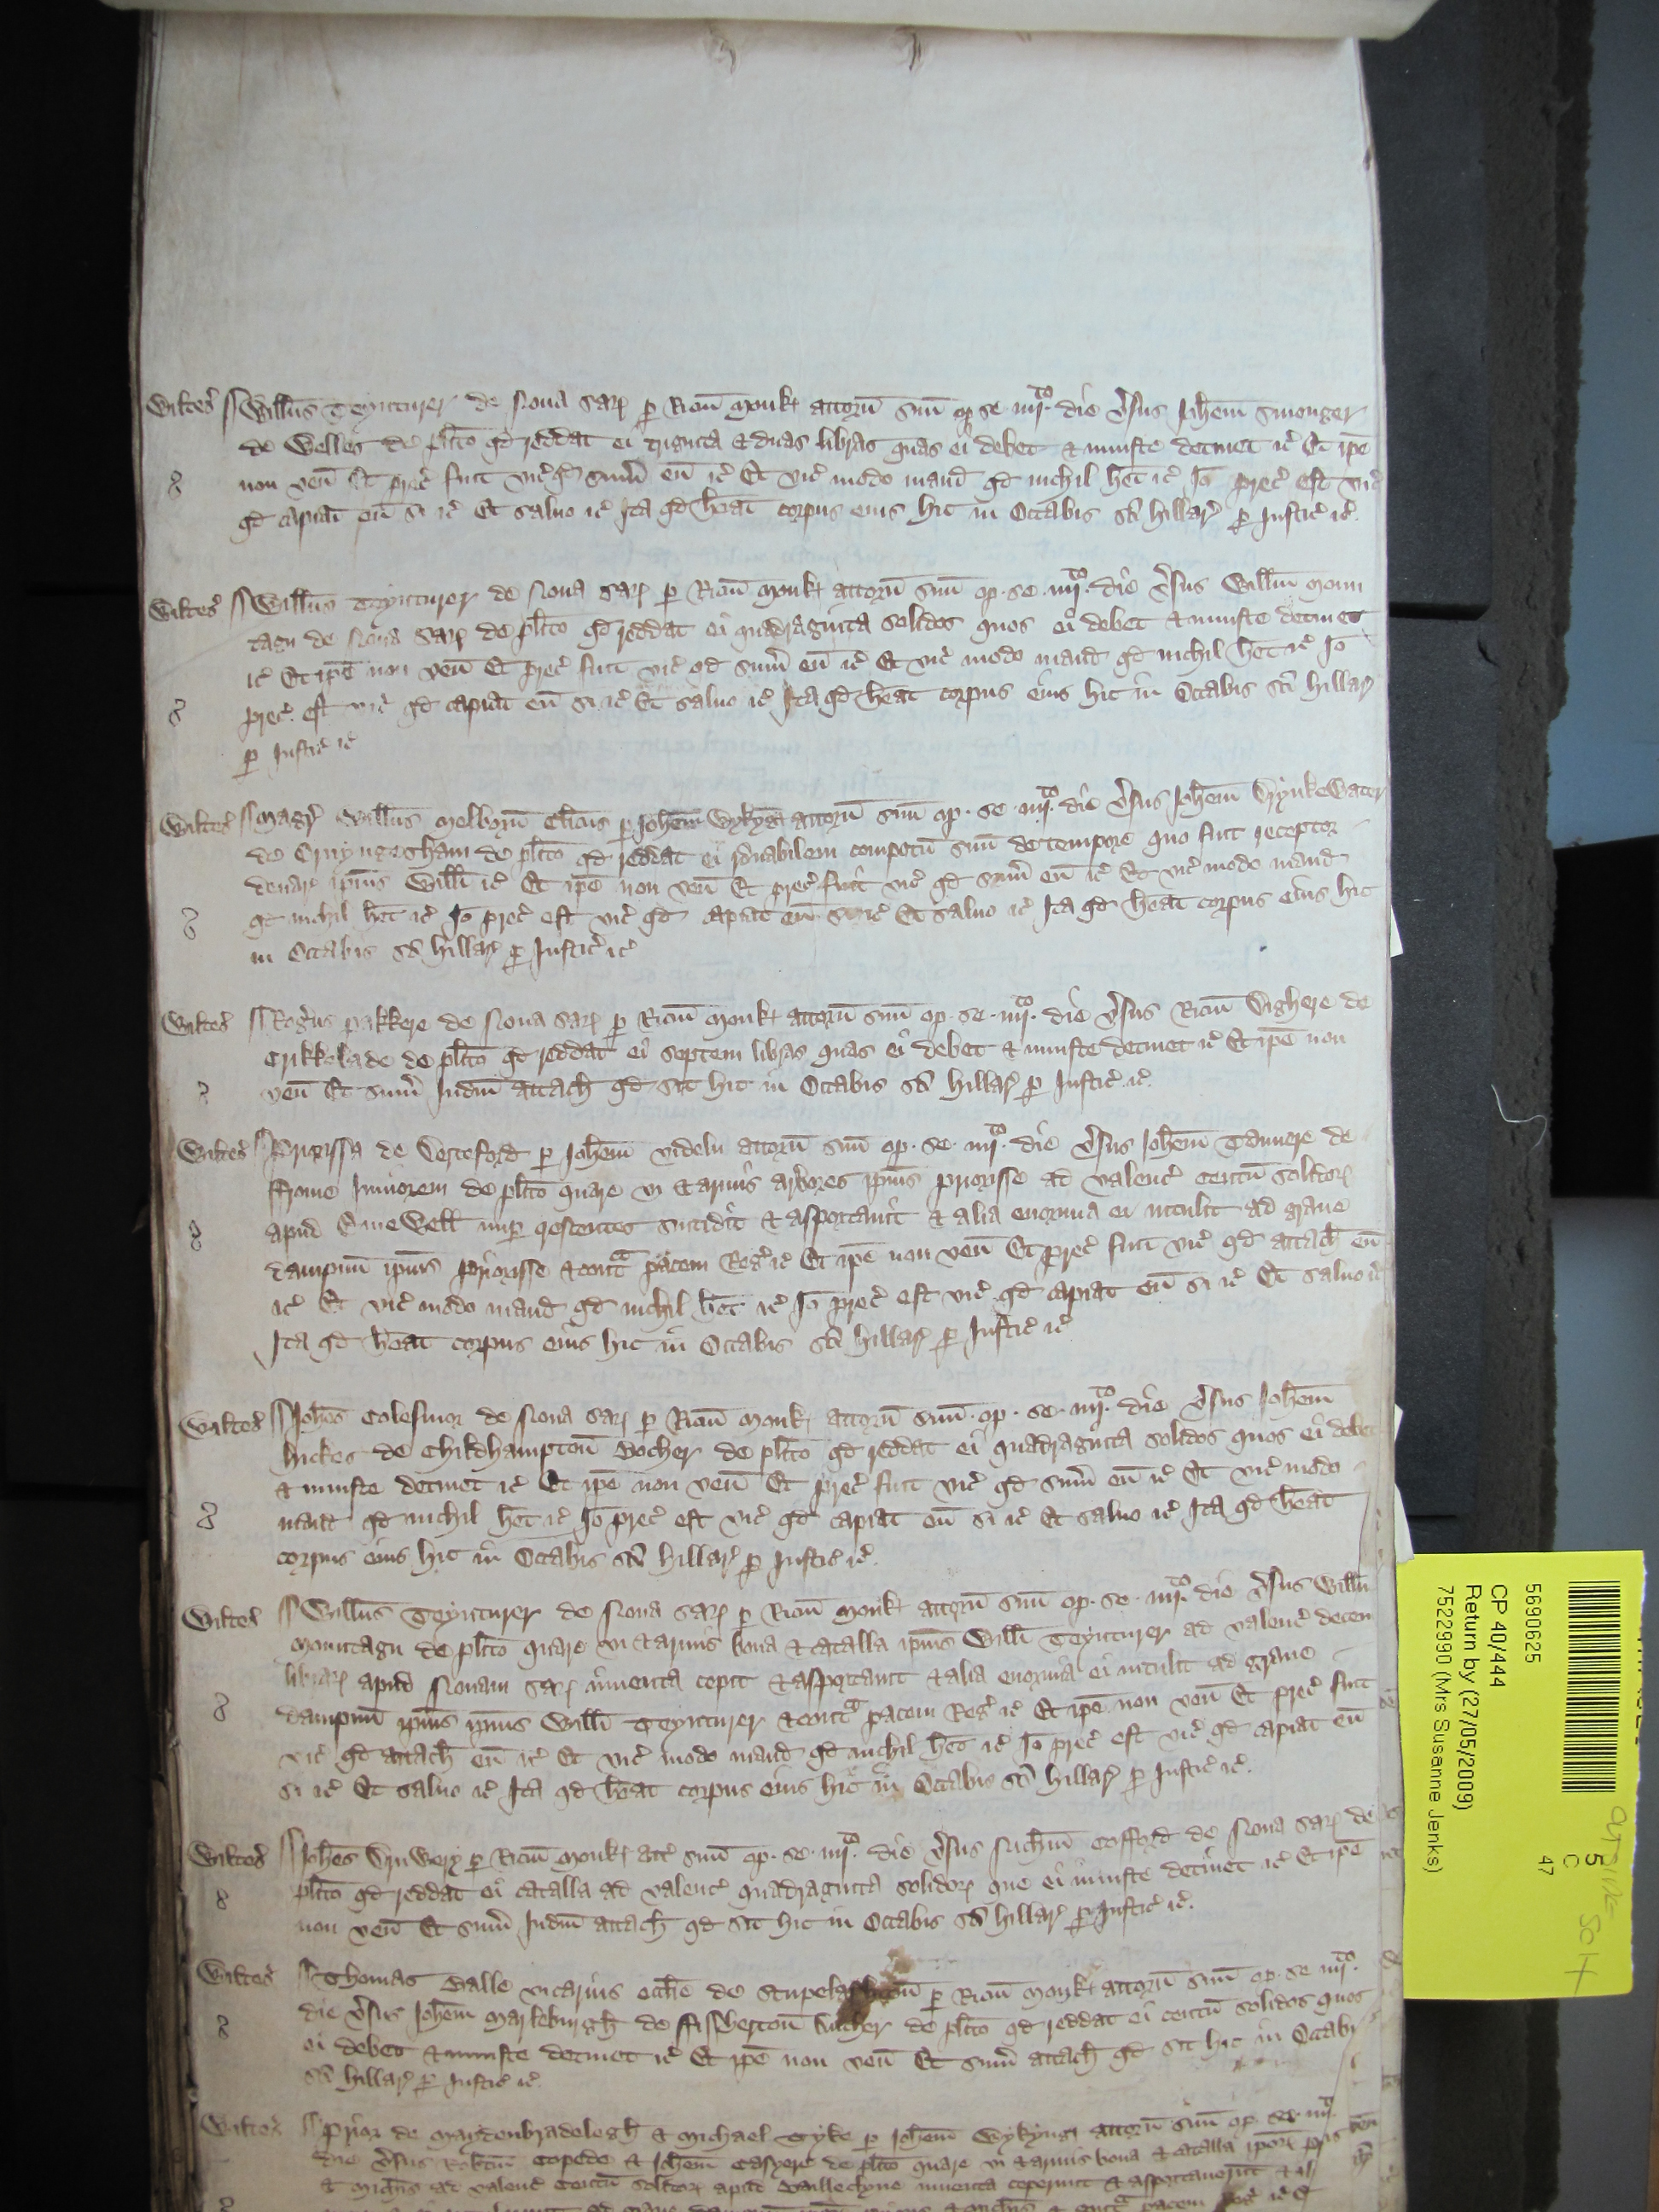 Wiltes' Willūs Teynturer de Noua Sar' p Ricm Monk' attorn suu op se iiijto die v'sus Johem Smonger
de Welles de plito qd reddat ei triginta & duas libras quas ei debet & iniuste detinet &c' Et ipe
non ven' Et prec' fuit vic' qd sum' eu &c' Et vic' modo mand' qd nichil het &c' Io prec' est vic'
qd capiat eu si &c' Et saluo &c' Ita qd heat corpus eius hic in Octabis sci Hillar' p Justic' &c'
Wiltes' Willūs Teynturer de Noua Sar' p Ricm Monk' attorn suu op se iiijto die v'sus Willm Moun
tagu de Noua Sar' de plito qd reddat ei quadraginta solidos quos ei debet & iniuste detinet
&c' Et ipe non ven' Et prec' fuit vic' qd sum' eu &c' Et vic' modo mand' qd nichil het &c' Io
prec' est vic' qd capiat eu si &c' Et saluo &c' Ita qd heat corpus eius hic in Octabis sci Hillar'
p Justic' &c'
Wiltes' Magr' Willūs Melborn Clicus p Johem Wykyng attorn suu op se iiijto die v'sus Johem Drynkewater
de de plito qd reddat ei ronabilem compotu suu de tempore quo fuit receptor
denar' ipius Willi &c' Et ipe non ven' Et prec' fuit vic' qd sum' eu &c' Et vic' modo mand'
qd nichil het &c' Io prec' est vic' qd capiat eu si &c' Et saluo &c' Ita qd heat corpus eius hic
in Octabis sci Hillar' p Justic' &c'
Wiltes' Rog'us Pakkere de Noua Sar' p Ricm Monk' attorn suu op se iiijto die v'sus Ricm Dighere de
Crikkelade de plito qd reddat ei septem libras quas ei debet & iniuste detinet &c' Et ipe non
ven' Et sum' Judm attach' qd sit hic in Octabis sci Hillar' p Justic' &c'
Wiltes' Priorissa de p Johem attorn suu op se iiijto die v'sus Johem Tannere de
ffrome Juniorem de plito quare vi & armis arbores ipius Priorisse ad valenc' centu solidor'
apud nup crescentes succidit & asportauit & alia enormia ei intulit ad graue
dampnu ipius Priorisse & contra pacem Reg' &c' Et ipe non ven' Et prec' fuit vic' qd attach' eu
&c' Et vic' modo mand' qd nichil het &c' Io prec' est vic' qd capiat eu si &c' Et saluo &c'
Ita qd heat corpus eius hic in Octabis sci Hillar' p Justic' &c'
Wiltes' Johes de Noua Sar' p Ricm Monk' attorn suu op se iiijto die v'sus Johem
Hickes de Childhampton Bocher de plito qd reddat ei quadraginta solidos quos ei debet
& iniuste detinet &c' Et ipe non ven' Et prec' fuit vic' qd sum' eu &c' Et vic' modo
mand' qd nichil het &c' Io prec' est vic' qd capiat eu si &c' Et saluo &c' Ita qd heat
corpus eius hic in Octabis sci Hillar' p Justic' &c'
Wiltes' Willūs Teynturer de Noua Sar' p Ricm Monk' attorn suu op se iiijto die v'sus Willm
Mountagu de plito quare vi & armis bona & catalla ipius Willi Teynturer ad valenc' decem
librar' apud Nouam Sar' inuenta cepit & asportauit & alia enormia ei intulit ad graue
dampnu ipius ipius Willi Teynturer & contra pacem Reg' &c' Et ipe non ven' Et prec' fuit
vic' qd attach' eu &c' Et vic' modo mand' qd nichil het &c' Io prec' est vic' qd capiat eu
si &c' Et saluo &c' Ita qd heat corpus eius hic in Octabis sci Hillar' p Justic' &c'
Wiltes' Johes p Ricm Monk' att' suu op se iiijto die v'sus Nichm Cofford de Noua Sar' de
plito qd reddat ei catalla ad valenc' quadraginta solidor' que ei iniuste detinet &c' Et ipe
non ven' Et sum' Judm attach' qd sit hic in Octabis sci Hillar' p Justic' &c'
Wiltes' Thomas Balle vicarius ecclie de p Ricm Monk' attorn suu op se iiijto
die v'sus Johem Marleburgh de ffissherton de plito qd reddat ei centu solidos quos
ei debet & iniuste detinet &c' Et ipe non ven' Et sum' attach' qd sit hic in Octabis
sci Hillar' p Justic' &c'
Wiltes' Prior de Maydenbradelegh & Michael p Johem Wykyng attorn suu op se iiijto
die v'sus Robtum & Johem de plito quare vi & armis bona & catalla
& Michis ad valenc' centu solidor' apud inuenta ceperunt & asportauerunt
5690625
CP 40/444
Return by (27/05/2009)
7522990 (Mrs Susanne Jenks)
5
C
47